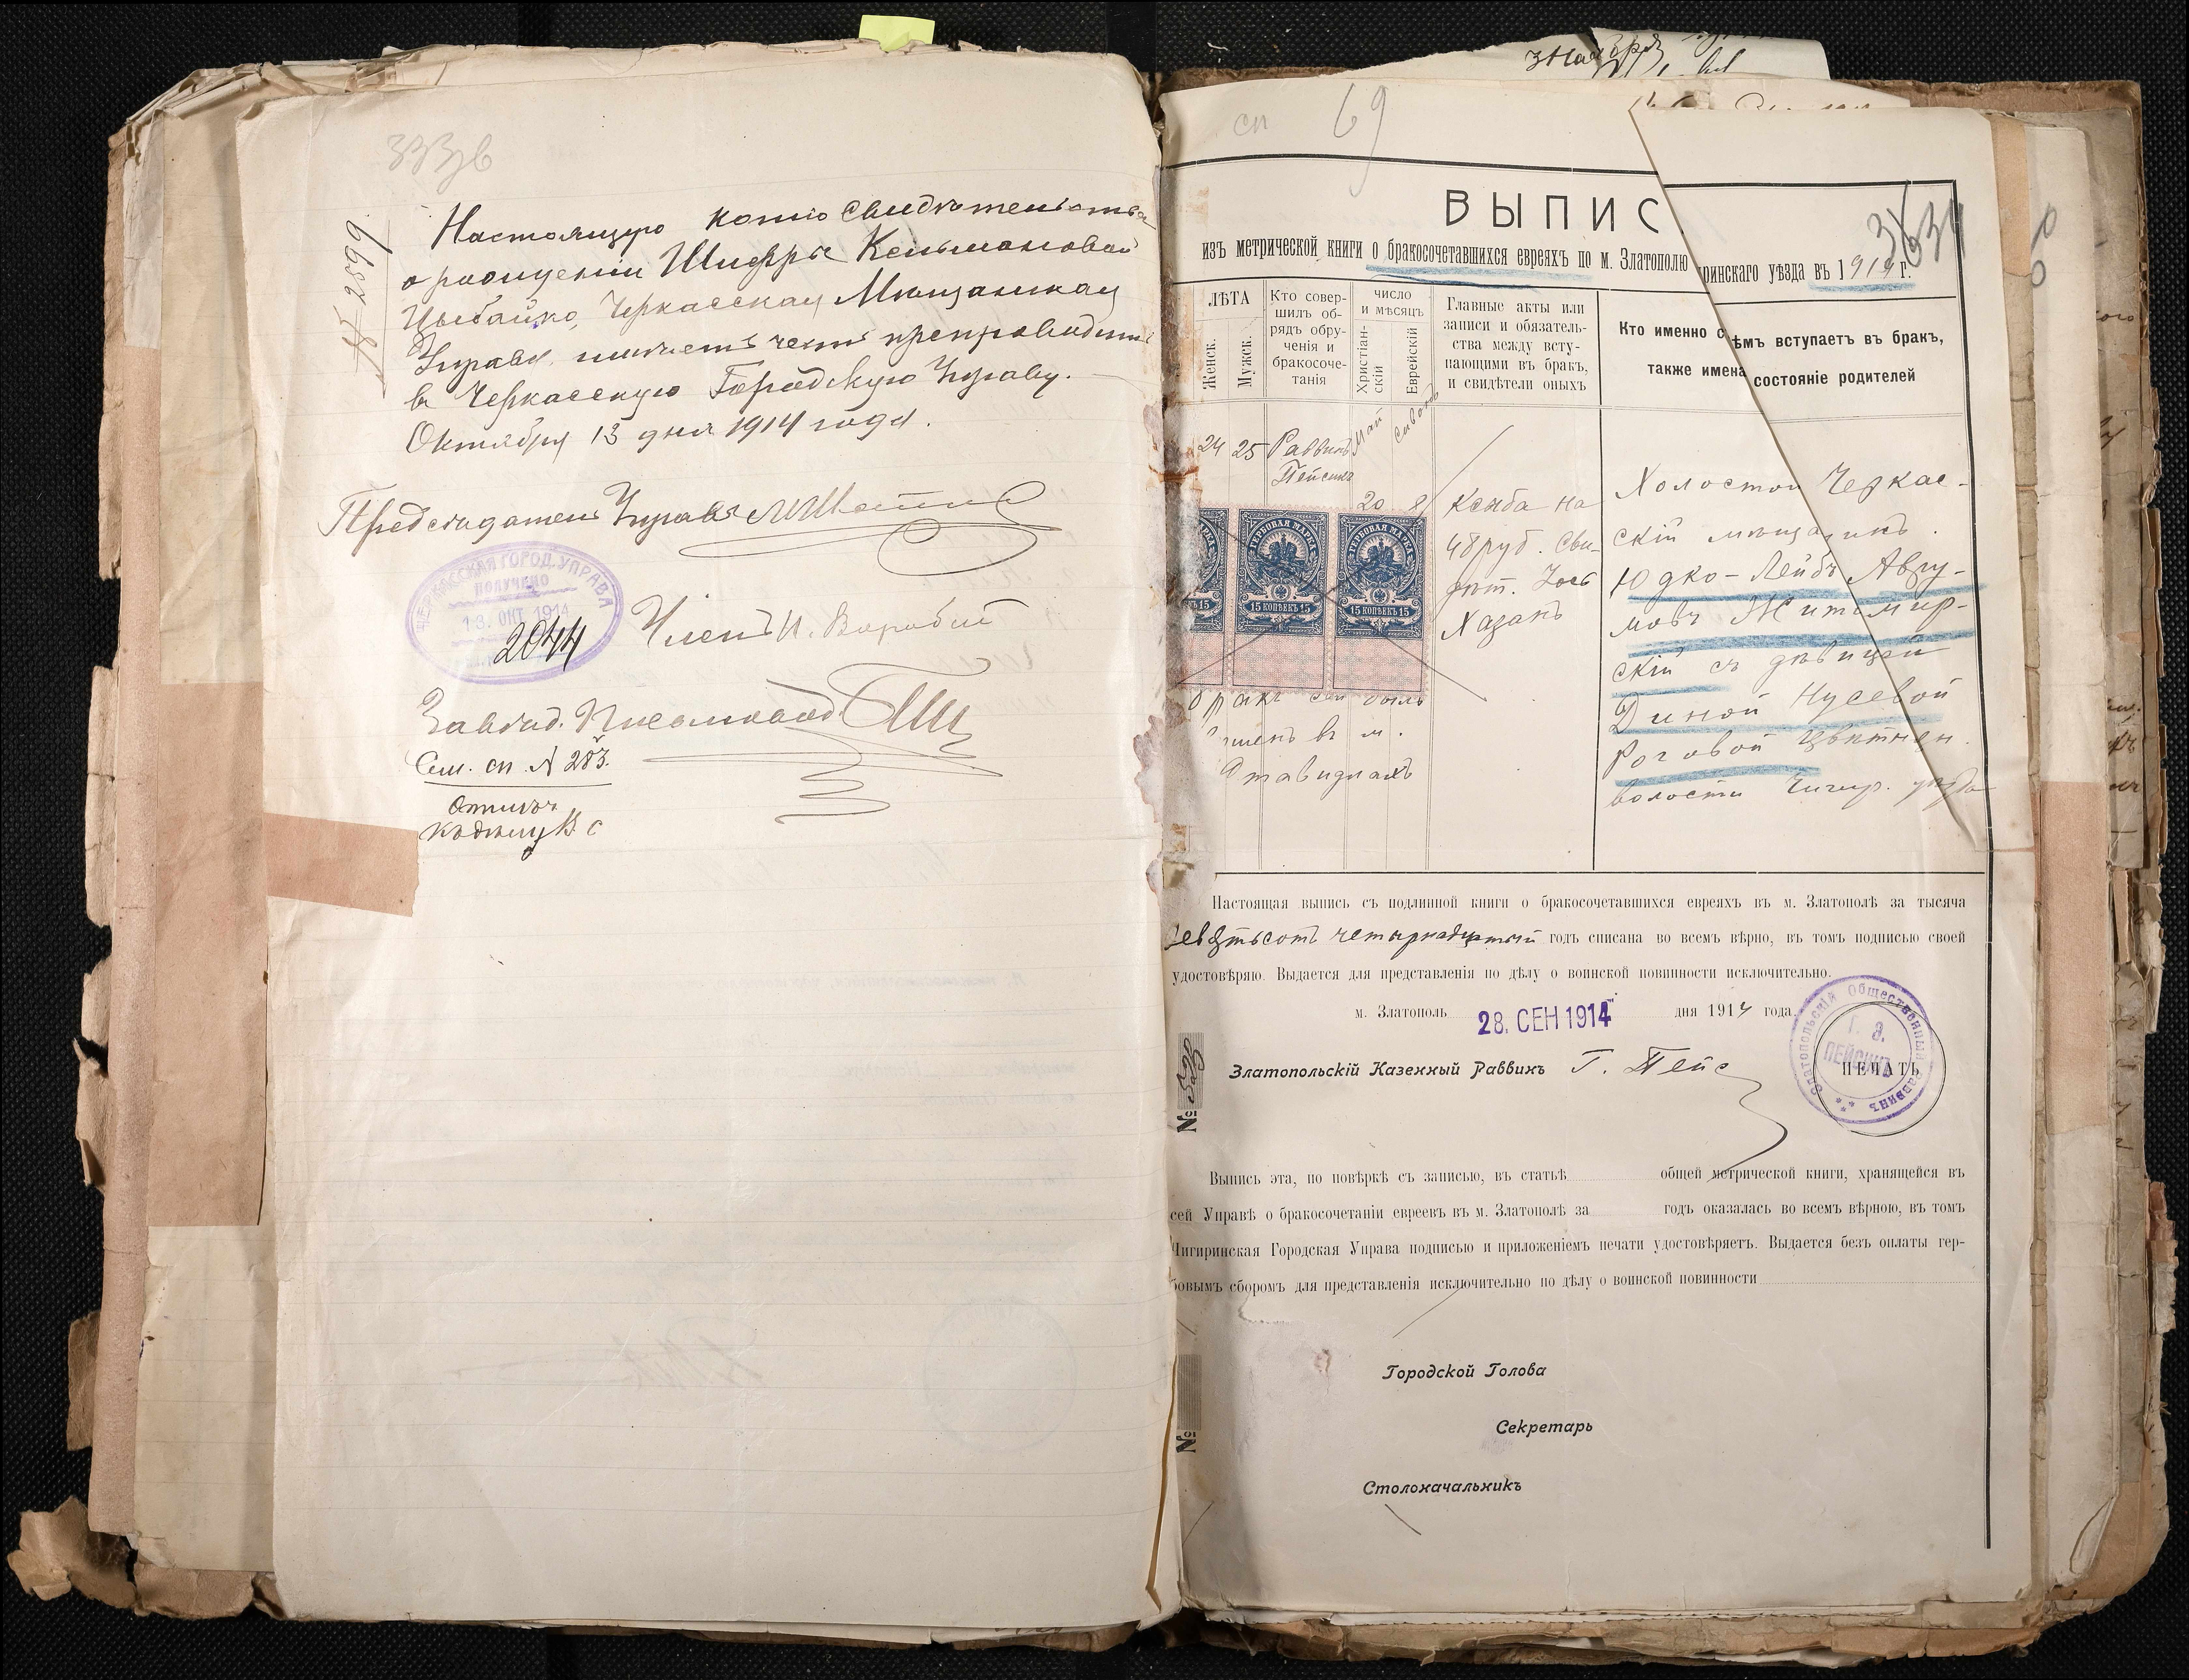 Настоящую копію свидѣтельства
о рожденіи Шифры Кельмановой
Цыбайко, Черкасская Мѣщанская
Управа имѣетъ честь препроводить
въ Черкасскую Городскую Управу.
Октября 13 дня 1914 года.
№ 2899
Предсѣдатель Управы
ЧЕРКАССКАЯ ГОРОД. УПРАВА
ПОЛУЧЕНО
13. ОКТ. 1914
2044
Членъ И. Воробій
Завѣд.
Сем. сп. № 283.
сп 69
ВЫПИС
изъ метрической книги о бракосочетавшихся евреяхъ по м. Златополю
ринскаго уѣзда въ 1914 г.
3634
ЛѢТА
Женск.
Мужск.
Кто совер-
шилъ об-
рядъ обру-
ченія и
бракосоче-
танія
число
и мѣсяцъ
Христіан-
скій
Еврейскій
Главные акты или
записи и обязатель-
ства между всту-
пающими въ бракъ,
и свидѣтели оныхъ
Кто именно с ѣмъ вступаетъ въ бракъ,
также имена состояніе родителей
24 25 Раввинъ
Пейсикъ
Май
20
Сивонъ
8
Ксуба на
48 руб. Сви-
дѣт.
Хазанъ
Холостой Черкас-
скій мѣщанинъ
Юдко-Лейбъ Авру-
мовъ Житомир-
скій съ дѣвицей
Диной Нусевой
Роговой Цвѣтнян.
волости Чигир. уѣзда
ГЕРБОВАЯ МАРКА
15 КОПѢЕКЪ 15
ГЕРБОВАЯ МАРКА
15 КОПѢЕКЪ 15
бракъ сей былъ
въ м.
Ставидлахъ
Настоящая выпись съ подлинной книги о бракосочетавшихся евреяхъ въ м. Златополѣ за тысяча
девятьсотъ четырнадцатый годъ списана во всемъ вѣрно, въ томъ подписью своей
удостовѣряю. Выдается для представленія по дѣлу о воинской повинности исключительно.
м. Златополь 28. СЕН 1914 дня 1914 года.
№ 529
Златопольскій Казенный Раввинъ Г. Пейс
Златопольскій Общественный Раввинъ
Г. Э.
ПЕЙСИКЪ
ПЕЧАТЬ
Выпись эта, по повѣркѣ съ записью, въ статьѣ общей метрической книги, хранящейся въ
сей Управѣ о бракосочетаніи евреевъ въ м. Златополѣ за годъ оказалась во всемъ вѣрною, въ томъ
Чигиринская Городская Управа подписью и приложеніемъ печати удостовѣряетъ. Выдается безъ оплаты гер-
бовымъ сборомъ для представленія исключительно по дѣлу о воинской повинности
№
Городской Голова
Секретарь
Столоначальникъ